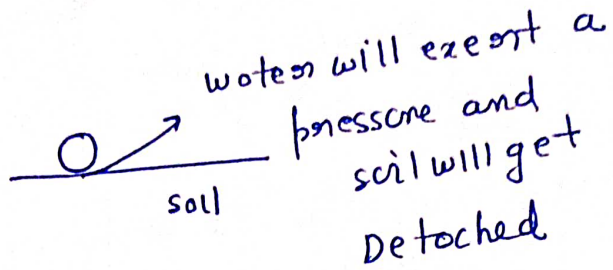 water will exert a
pressure and
soil will get
Detached
soil